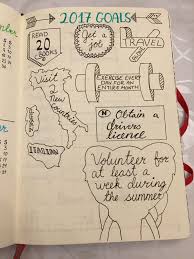 2017 GOALS
READ
20
BOOKS
Get a
job
TRAVEL
Visit
2
New
Countries
EXERCISE EVERY
DAY FOR AN
ENTIRE MONTH
ITALIAN
Obtain a
drivers
licence
Volunteer for
at least a
week during
the summer